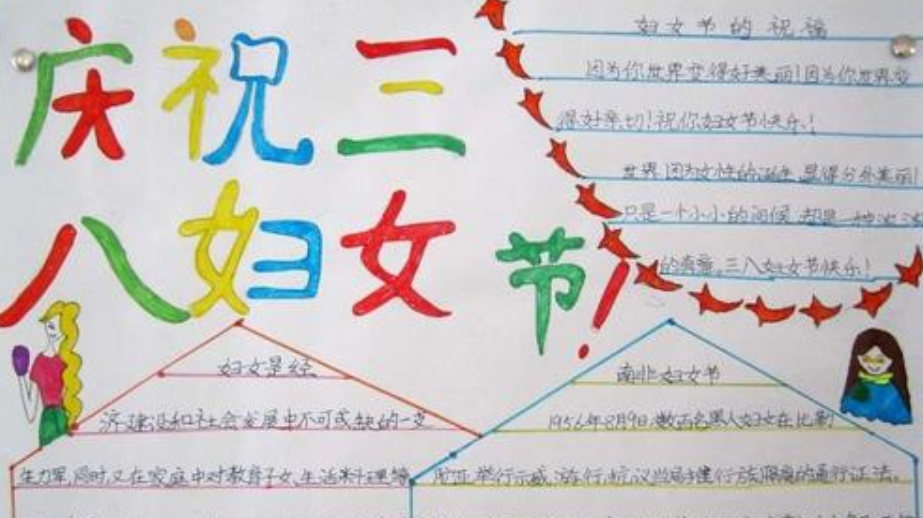 庆祝三
八妇女节!
妇女节的祝福
因为你世界变得好美丽!因为你世界变
得好亲切!祝你妇女节快乐!
世界因为女性的诞生显得分外美丽!
只是一个小小的问候,却是一种浓浓
的情意,三八妇女节快乐!
妇女是经
济建设和社会发展中不可或缺的一支
生力军,同时,又在家庭中对教育子女、生活料理
南非妇女节
1956年8月9日,数百名黑人妇女在比勒
陀亚举行示威游行,抗议当局推行种族隔离的通行证法。